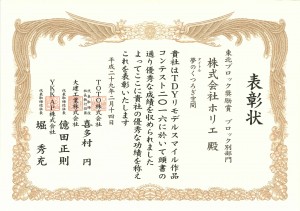 表彰状
東北ブロック奨励賞 ブロック別部門
タイトル
夢のくつろぎ空間
株式会社ホリエ 殿
貴社はTDYリモデルスマイル作品
コンテスト二〇一六に於いて頭書の
通り優秀な成績を収められました
よってここに貴社の優秀な功績を称え
これを表彰いたします
平成二十九年二月十四日
TOTO株式会社
喜多村 円
大建工業株式会社
億田正則
YKK AP株式会社
堀 秀充